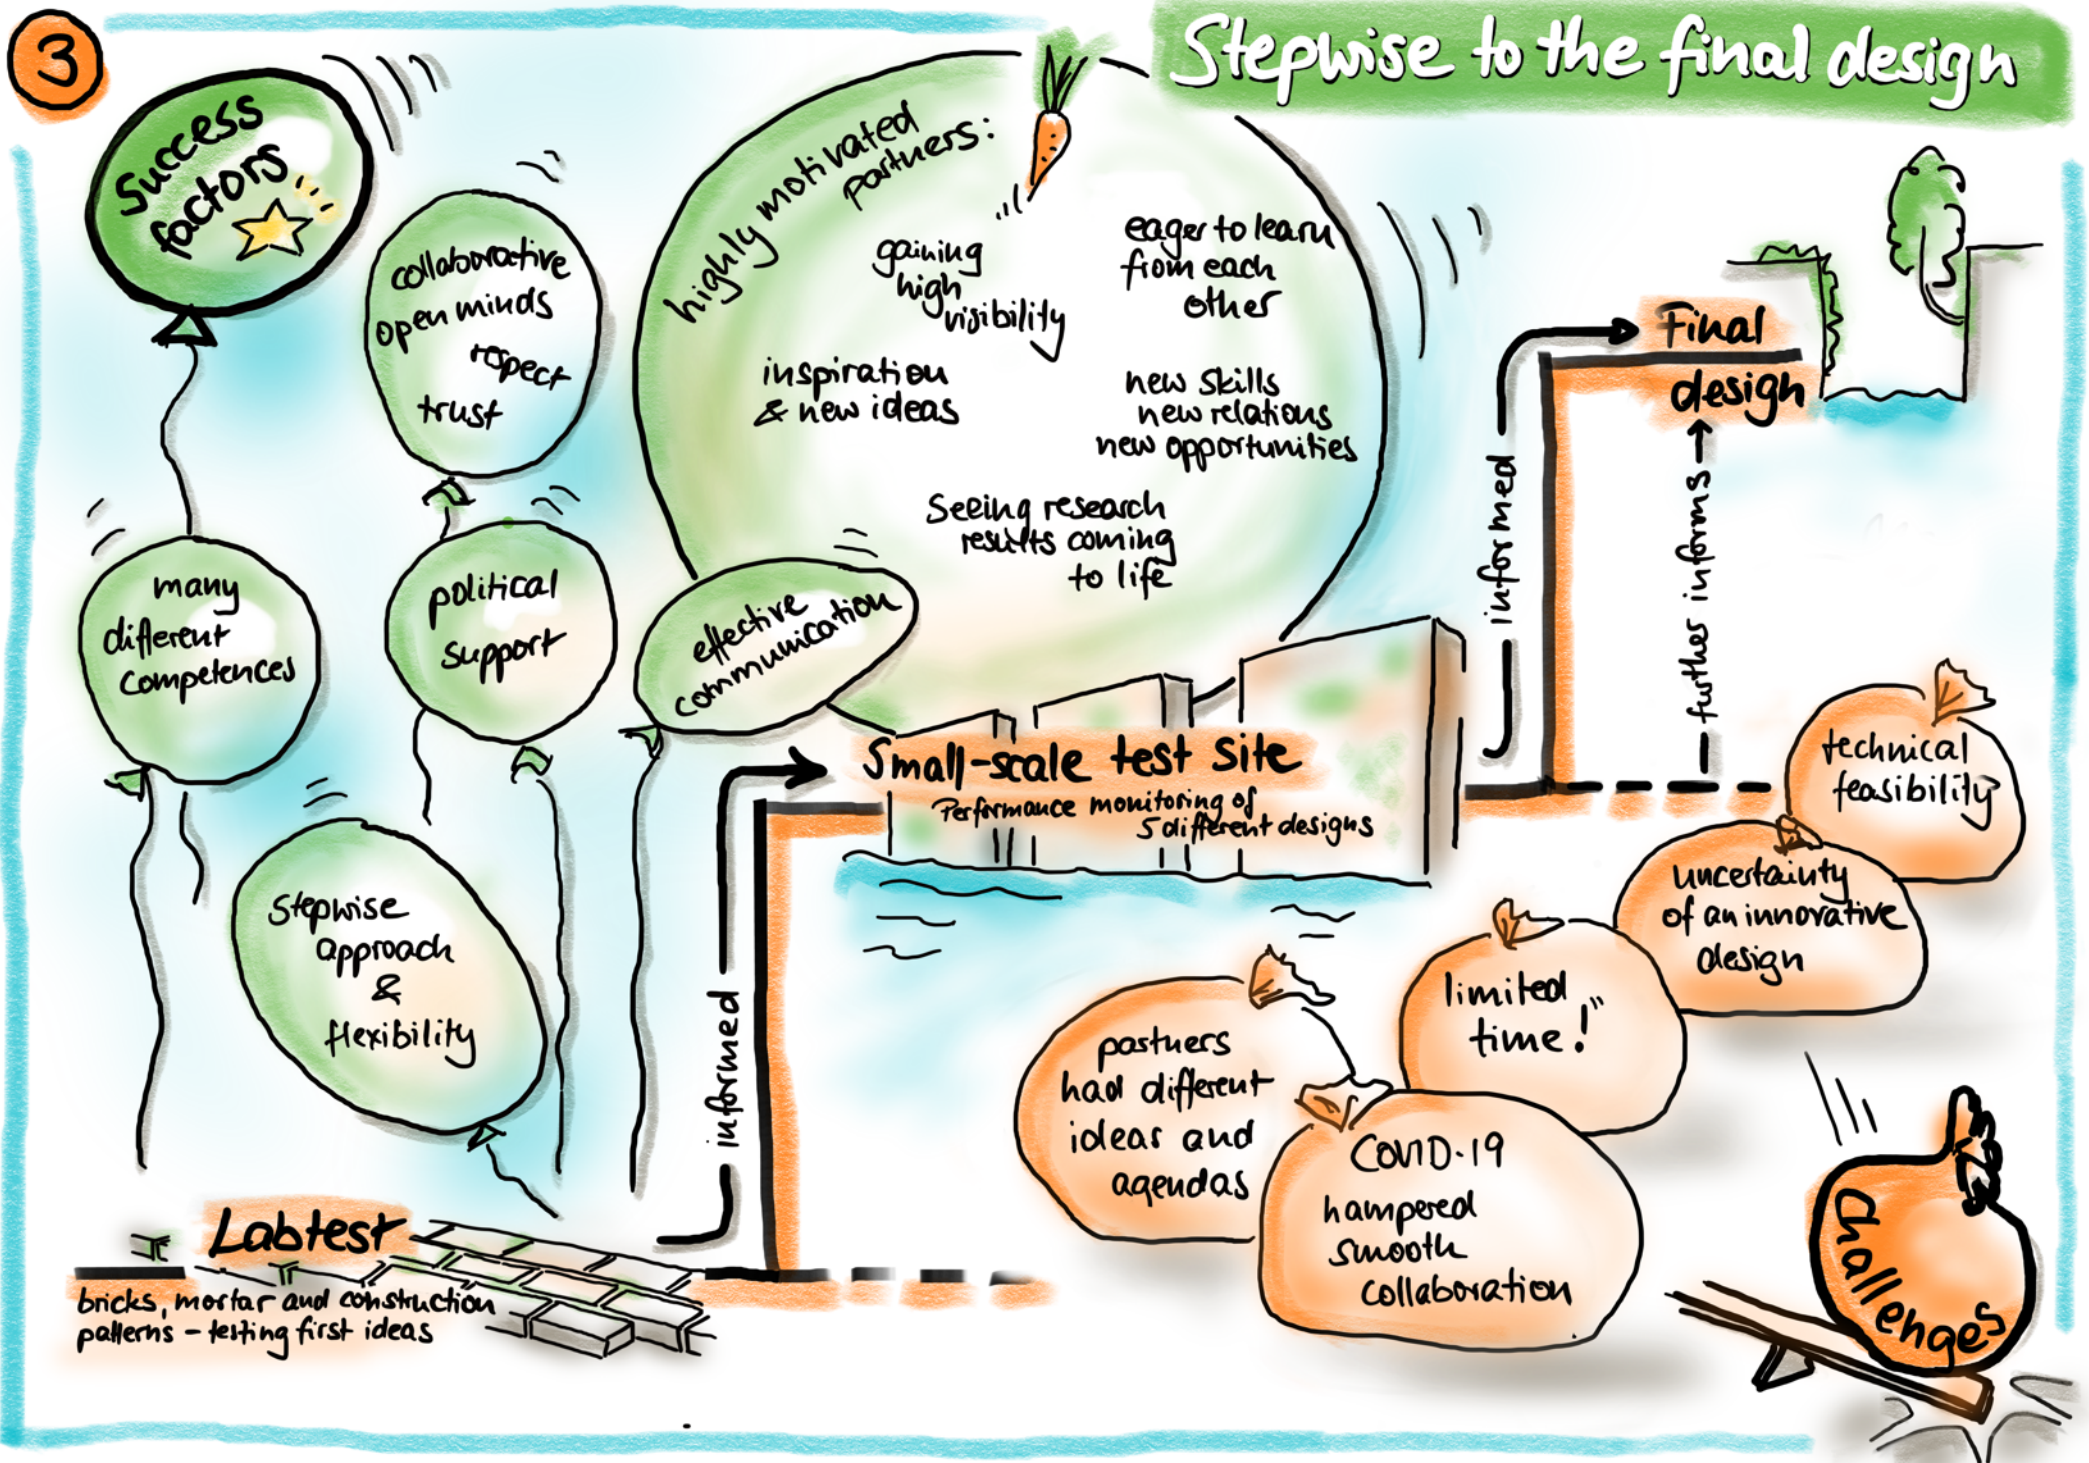 3
Stepwise to the final design
Success
factors
collaborative
open minds
respect
trust
highly motivated
partners:
gaining
high
visibility
eager to learn
from each
other
inspiration
& new ideas
new skills
new relations
new opportunities
Seeing research
results coming
to life
many
different
competences
political
support
effective
communication
Stepwise
approach
&
flexibility
Labtest
bricks, mortar and construction
patterns – testing first ideas
informed
Small-scale test site
Performance monitoring of
5 different designs
informed
further informs
Final
design
technical
feasibility
uncertainty
of an innovative
design
limited
time!
partners
had different
ideas and
agendas
COVID-19
hampered
smooth
collaboration
Challenges